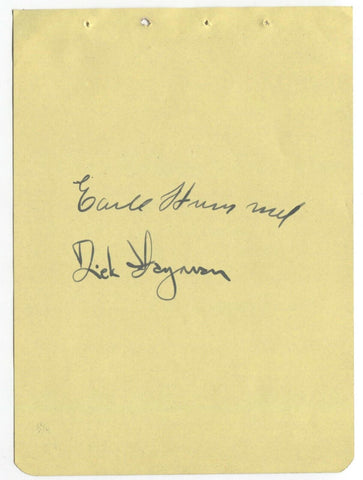 Earle Hummel
Dick Hayman